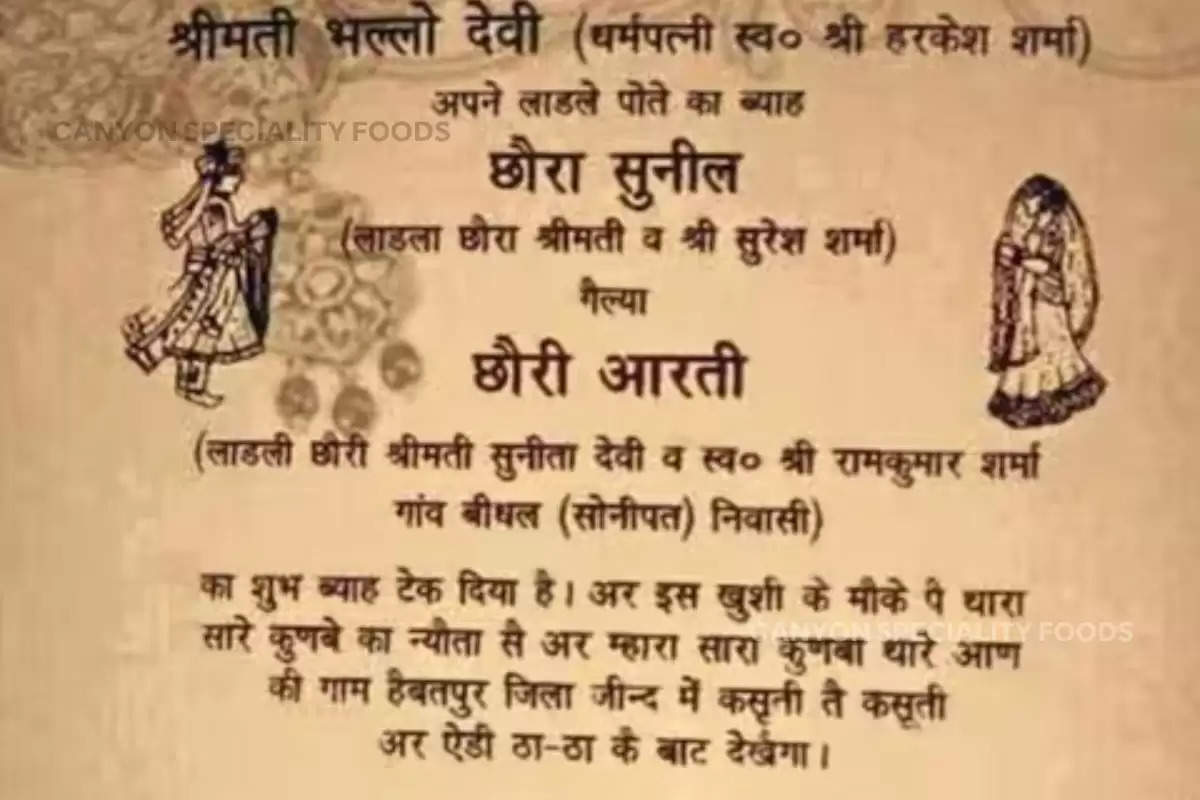 श्रीमती भल्लो देवी (धर्मपत्नी स्व० श्री हरकेश शर्मा)
अपने लाडले पोते का ब्याह
CANYON SPECIALITY FOODS
छौरा सुनील
(लाडला छौरा श्रीमती व श्री सुरेश शर्मा)
गैल्या
छौरी आरती
(लाडली छौरी श्रीमती सुनीता देवी व स्व० श्री रामकुमार शर्मा
गांव बीधल (सोनीपत) निवासी)
का शुभ ब्याह टेक दिया है। अर इस खुशी के मौके पै थारा
सारे कुणबे का न्यौता सै अर म्हारा सारा कुणबा थारे आण
CANYON SPECIALITY FOODS
की गाम हैबतपुर जिला जीन्द में कसूती तै कसूती
अर ऐडी ठा-ठा कै बाट देखैगा।